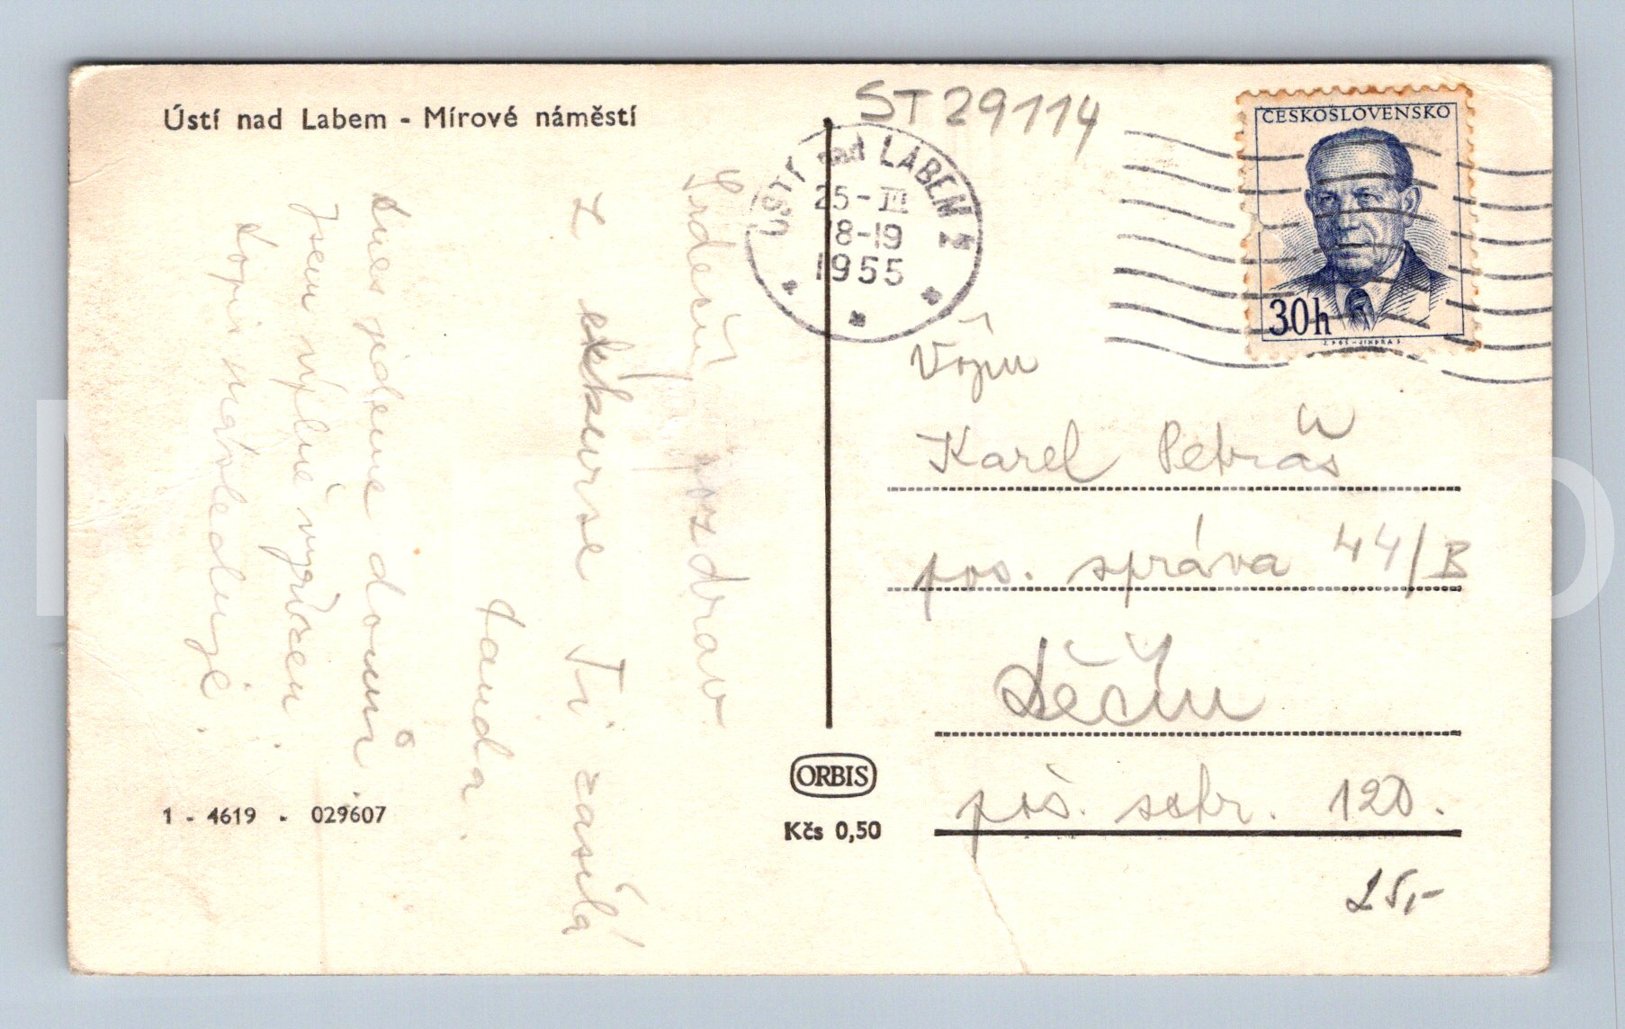 Ústí nad Labem - Mírové náměstí
ST 29114
ÚSTÍ nad LABEM 2
25-III
18-19
1955
ČESKOSLOVENSKO
30h
Srdečný pozdrav
z exkurse Ti zasílá
Standa.
Dnes jedeme domů.
Jsem úplně vyřízen.
Dopis následuje.
Vojín
Karel Petráš
pos. správa 44/B
Děčín
poš. schr. 120.
25,-
ORBIS
Kčs 0,50
1 - 4619 - 029607